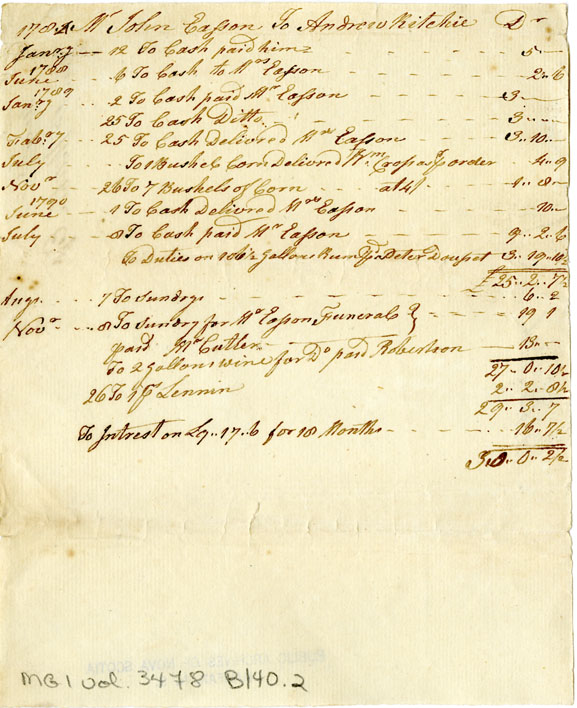 1784 Mr John Easson To Andrew Ritchie Dr
Jany 12 To Cash paid him 5
1788
June 6 To Cash to Mrs Easson 2 .. 6
1789
Jany 2 To Cash paid Mr Easson 3
25 To Cash Ditto 3
Feabry 25 To Cash Delivred Mrs Easson 3 .. 10
July To 1 Bushel Corn Delivred Wm order 4 .. 9
Novr 26 To 7 Bushels of Corn at 4/ 1 .. 8
1790
June 1 To Cash Delivred Mrs Easson 10
July 8 To Cash paid Mr Easson 9 .. 2 .. 6
To Duties on 106 1/2 Gallons Rum 3 .. 19 .. 10 1/2
£25 .. 2 .. 7 1/2
Augt 7 To Sundrys 6 .. 2
Novr 8 To Sundry for Mr Easson Funeral } 19 1
paid Mr Cutler
To 2 gallons wine for Do paid Robertson 13
27 .. 0 .. 10 1/2
26 To 1 ps Lennin 2 .. 2 .. 8 1/2
29 .. 3 .. 7
To Intrest on £9 .. 17 .. 6 for 18 Months 16 .. 7 1/2
30 .. 0 .. 2 1/2
PUBLIC ARCHIVES OF NOVA SCOTIA
MG 1 vol. 3478 B/40.2